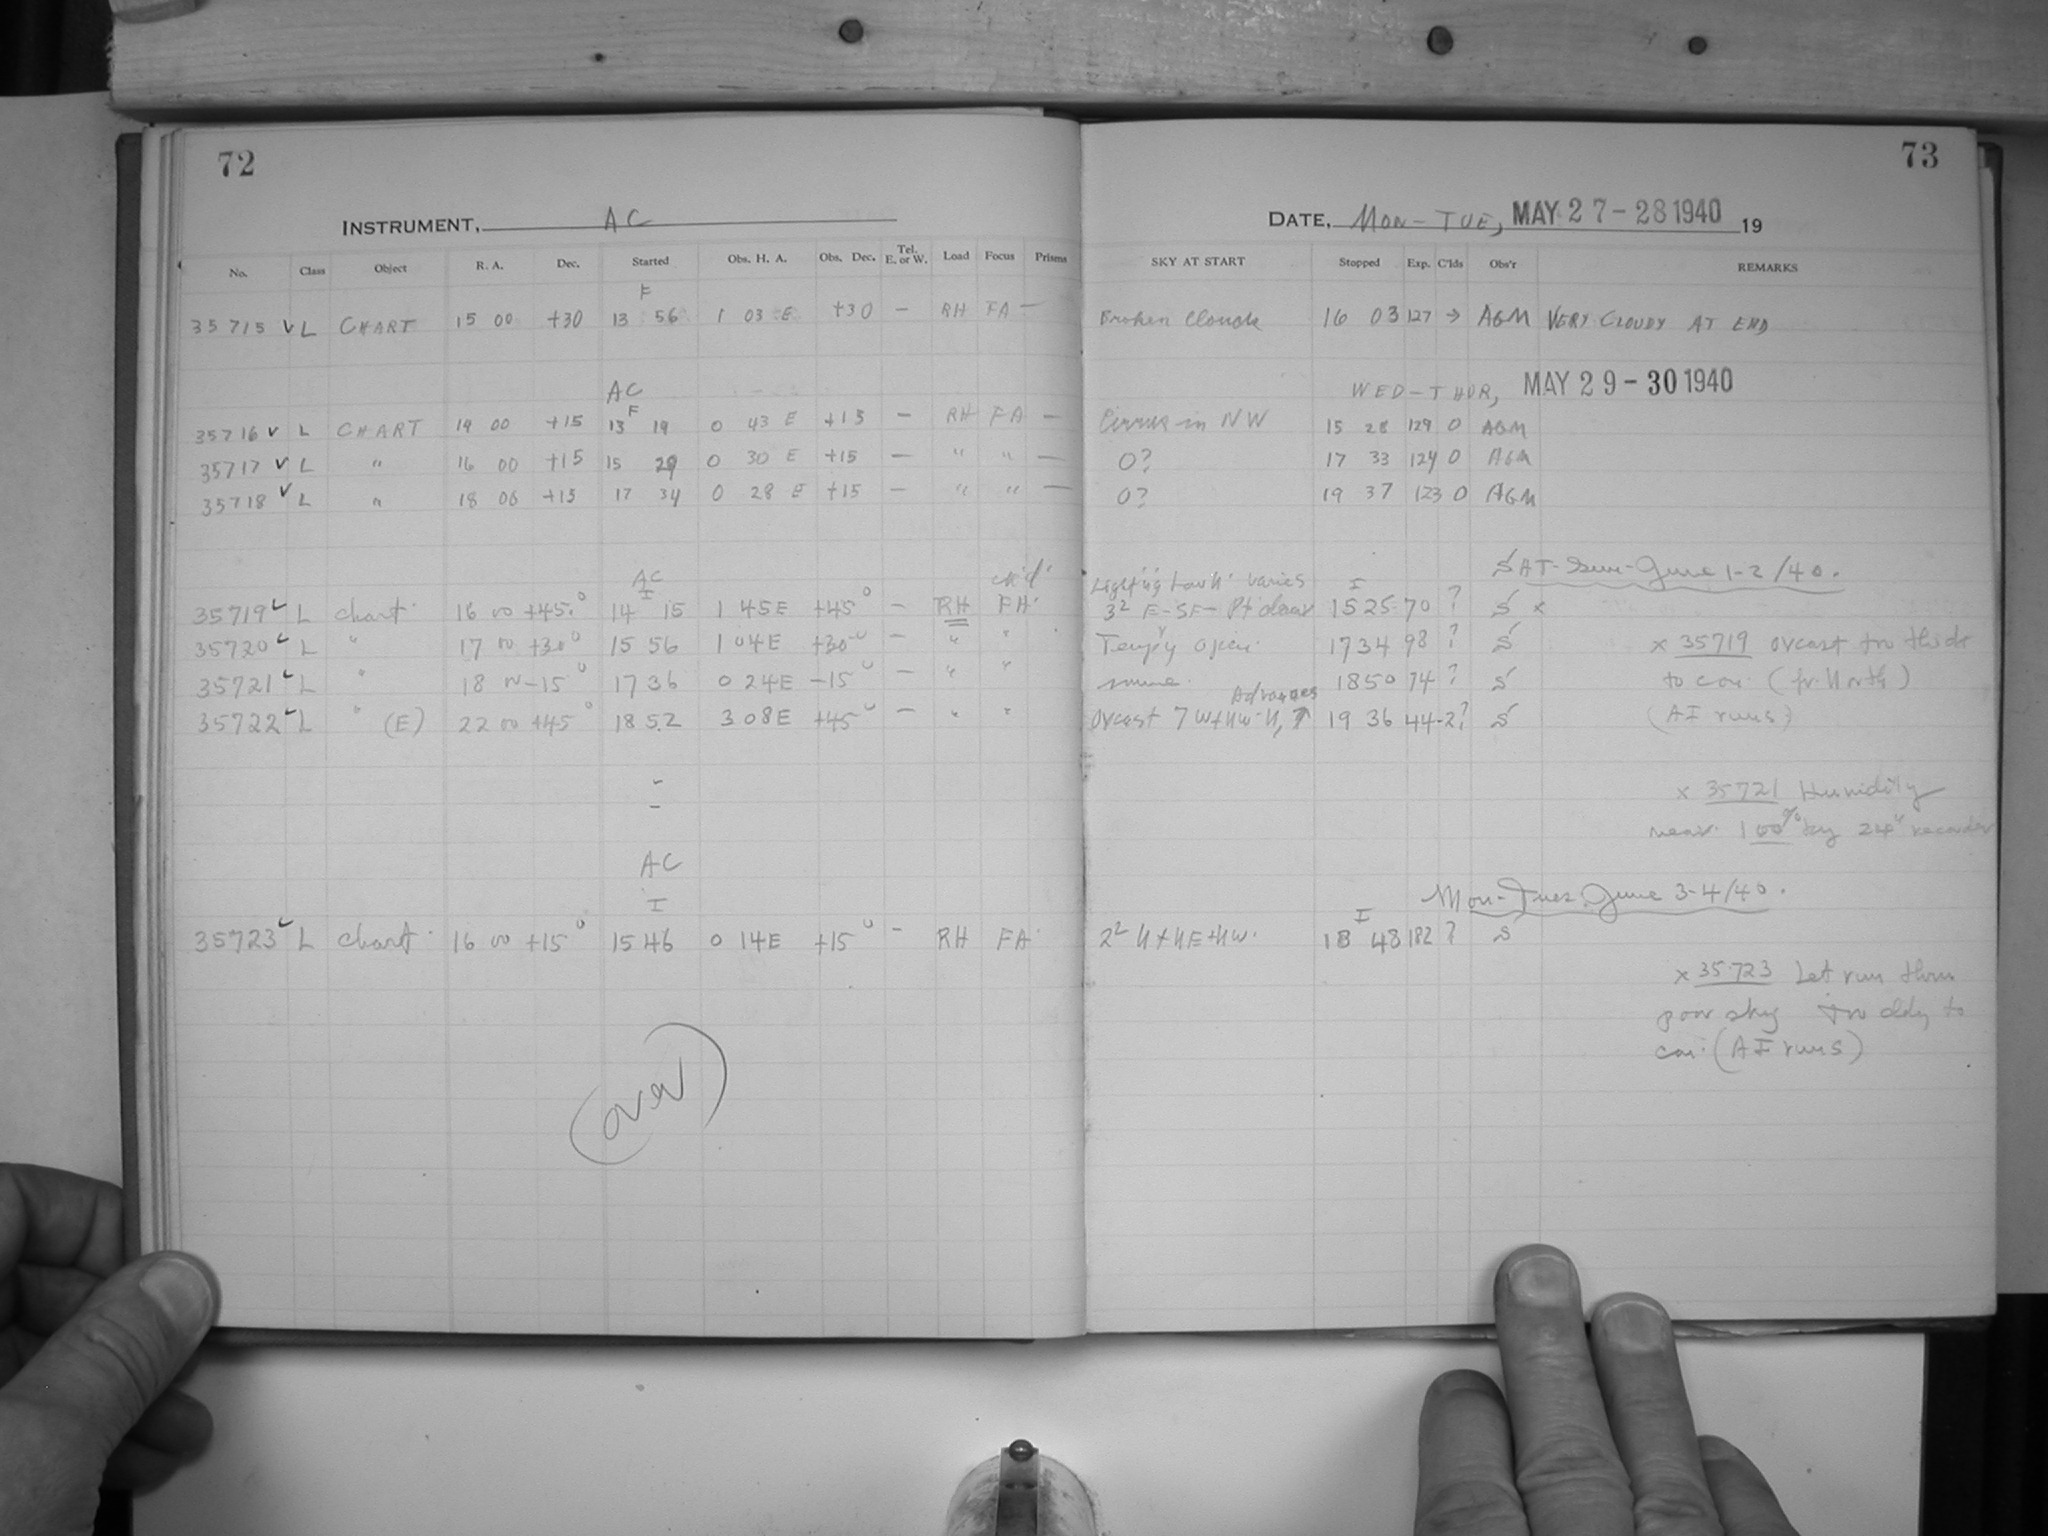 72
INSTRUMENT, AC
No. Class Object R. A. Dec. Started Obs. H. A. Obs. Dec. Tel. E. or W. Load Focus Prisms
F
35715 v L CHART 15 00 +30 13 56 1 03 E +30 — RH FA —
AC
F
35716 v L CHART 14 00 +15 13 19 0 43 E +15 — RH FA —
35717 v L " 16 00 +15 15 29 0 30 E +15 — " " —
35718 v L " 18 00 +15 17 34 0 28 E +15 — " " —
AC
I
35719 L Chart 16 00 +45° 14 15 1 45E +45° — RH FA
35720 L " 17 00 +30° 15 56 1 04E +30° — " "
35721 L " 18 00 -15° 17 36 0 24E -15° — " "
35722 L " (E) 22 00 +45° 18 52 3 08E +45° — " "
AC
I
35723 L Chart 16 00 +15° 15 46 0 14E +15° — RH FA
(over)
73
DATE, MON-TUE, MAY 27-28 1940 19
SKY AT START Stopped Exp. C'lds Obs'r REMARKS
Broken Clouds 16 03 127 → AGM VERY CLOUDY AT END
WED-THUR, MAY 29-30 1940
Cirrus in NW 15 28 129 0 AGM
0? 17 33 124 0 AGM
0? 19 37 123 0 AGM
SAT-Sun-June 1-2/40.
varies I
3² E-SE- Pt clear 15 25 70 ? S x
Temp'y open 17 34 98 ? S
same 18 50 74 ? S
Advances
Ovcast 7 W+NW-N, 19 36 44 -2? S
x 35719 ovcast too thick
to con. (fr. North)
(AI runs)
x 35721 Humidity
near 100% by 24" recorder
Mon-Tues June 3-4/40.
I
2² N+NE+NW. 18 48 182 ? S
x 35723 Let run thru
poor sky too cldy to
con. (AI runs)